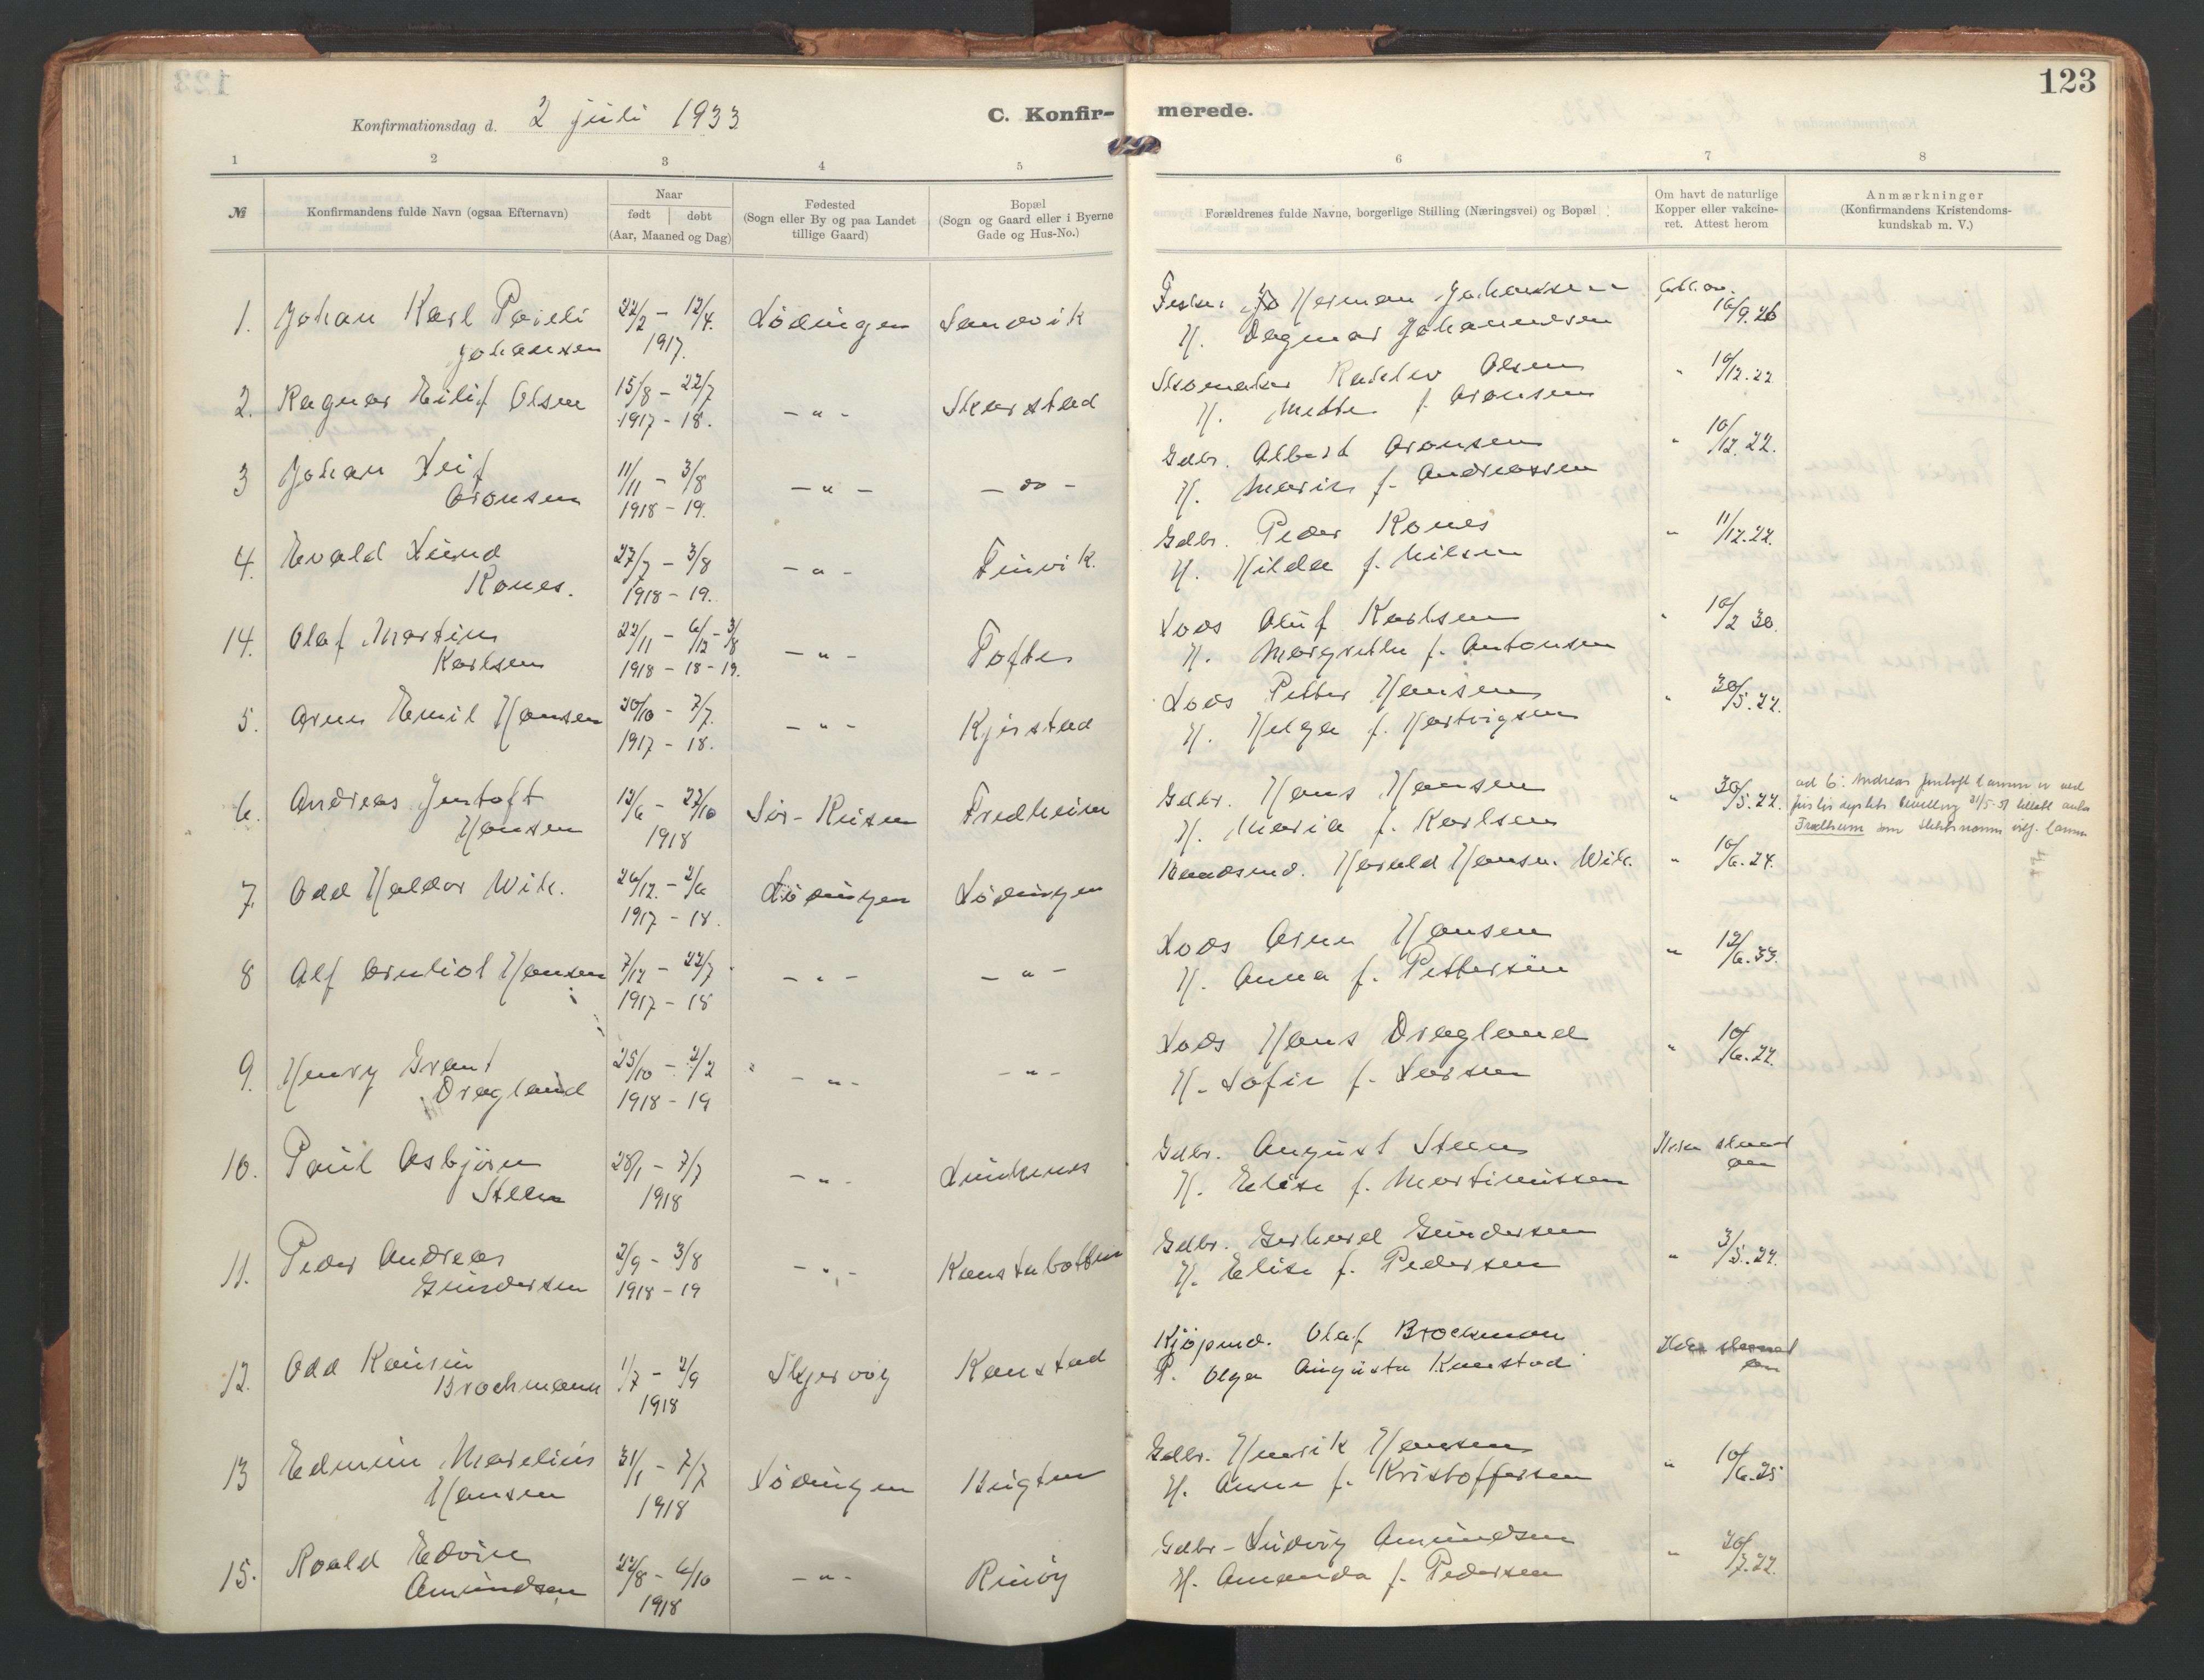 123
Konfirmationsdag d. 2 juli 1933
C. Konfir-
merede.
1 2 3 4 5 6 7 8
№
Konfirmandens fulde Navn (ogsaa Efternavn)
Naar
født | døbt
(Aar, Maaned og Dag)
Fødested
(Sogn eller By og paa Landet
tillige Gaard)
Bopæl
(Sogn og Gaard eller i Byerne
Gade og Hus-No.)
Forældrenes fulde Navne, borgerlige Stilling (Næringsvei) og Bopæl
Om havt de naturlige
Kopper eller vakcine-
ret. Attest herom
Anmærkninger
(Konfirmandens Kristendoms-
kundskab m. V.)
1. Johan Karl Johansen 22/2 - 12/4 1917. Lödingen Sandvik
Herman Johansen 16/9.26
H. Dagmar Johannesen
2. Ragnar Eilif Olsen 15/8 - 22/7 1917 - 18. - " - Skarstad
Skomaker Olsen " 10/12.22
H. Mette f. Aronsen
3 Johan Leif Aronsen 11/11 - 3/8 1918 - 19. - " - - " -
Gdbr. Albert Aronsen " 10/12.22.
H. Marie f. Andreassen
4. Evald Lund Rones. 27/7 - 3/8 1918 - 19. - " - Finvik.
Gdbr. Peder Rones " 11/12.22.
H. Hilda f. Nilsen
14. Olaf Martin Karlsen 22/11 - 6/12 - 3/8 1918 - 18 - 19. - " - Tofte
Lods Oluf Karlsen " 10/2 30.
H. Margrethe f. Antonsen
5. Arne Emil Hansen 20/10 - 7/7. 1917 - 18. - " - Kjerstad
Lods Petter Hansen " 30/5.22.
H. Helga f. Hartvigsen
6. Andreas Jentoft Hansen 12/6 - 27/10 1918 Sör-Reisen Fredheim
Gdbr. Hans Hansen " 30/5.22.
H. Maria f. Karlsen
ad 6: Andreas Jentoft Hansen er ved
31/5-51 tillatt
Fredheim som slektsnavn
7. Odd Haldor Wik. 26/12. - 2/6 1917 - 18. Lödingen Lödingen
Harald Hansen Wik. " 10/6.24.
8 Alf Arnliot Hansen 7/12 - 22/7 1917 - 18 - " - - " -
Lods Arne Hansen " 12/6.33.
H. Anna f. Pettersen
9. Henry Grant Dragland 25/10 - 2/2 1918 - 19 - " - - " -
Lods Hans Dragland " 10/6.22.
H. Sofie f. Larsen
10. Paul Asbjörn Steen 28/1 - 7/7 1918 - " - Lindenes
Gdbr. August Steen
H. Elise f. Martinussen
11. Peder Andreas Gundersen 2/9 - 3/8 1918 - 19 - " - Kanstabotten
Gdbr. Gerhard Gundersen " 3/5.22.
H. Elise f. Pedersen
12. Odd Brochmann 1/7 - 2/9 1918 Skjervöy Kanstad
Kjöpmd. Olaf Brochmann
P. Olga Augusta Kanstad
13 Edmun Marelius Hansen 31/1 - 7/7 1918 Lödingen
Gdbr. Henrik Hansen " 10/6.25
H. Anne f. Kristoffersen
15. Roald Edvin Amundsen 22/8 - 6/10 1918 - " - Rinöy
Gdbr - Ludvig Amundsen " 20/7.22.
H. Amanda f. Pedersen